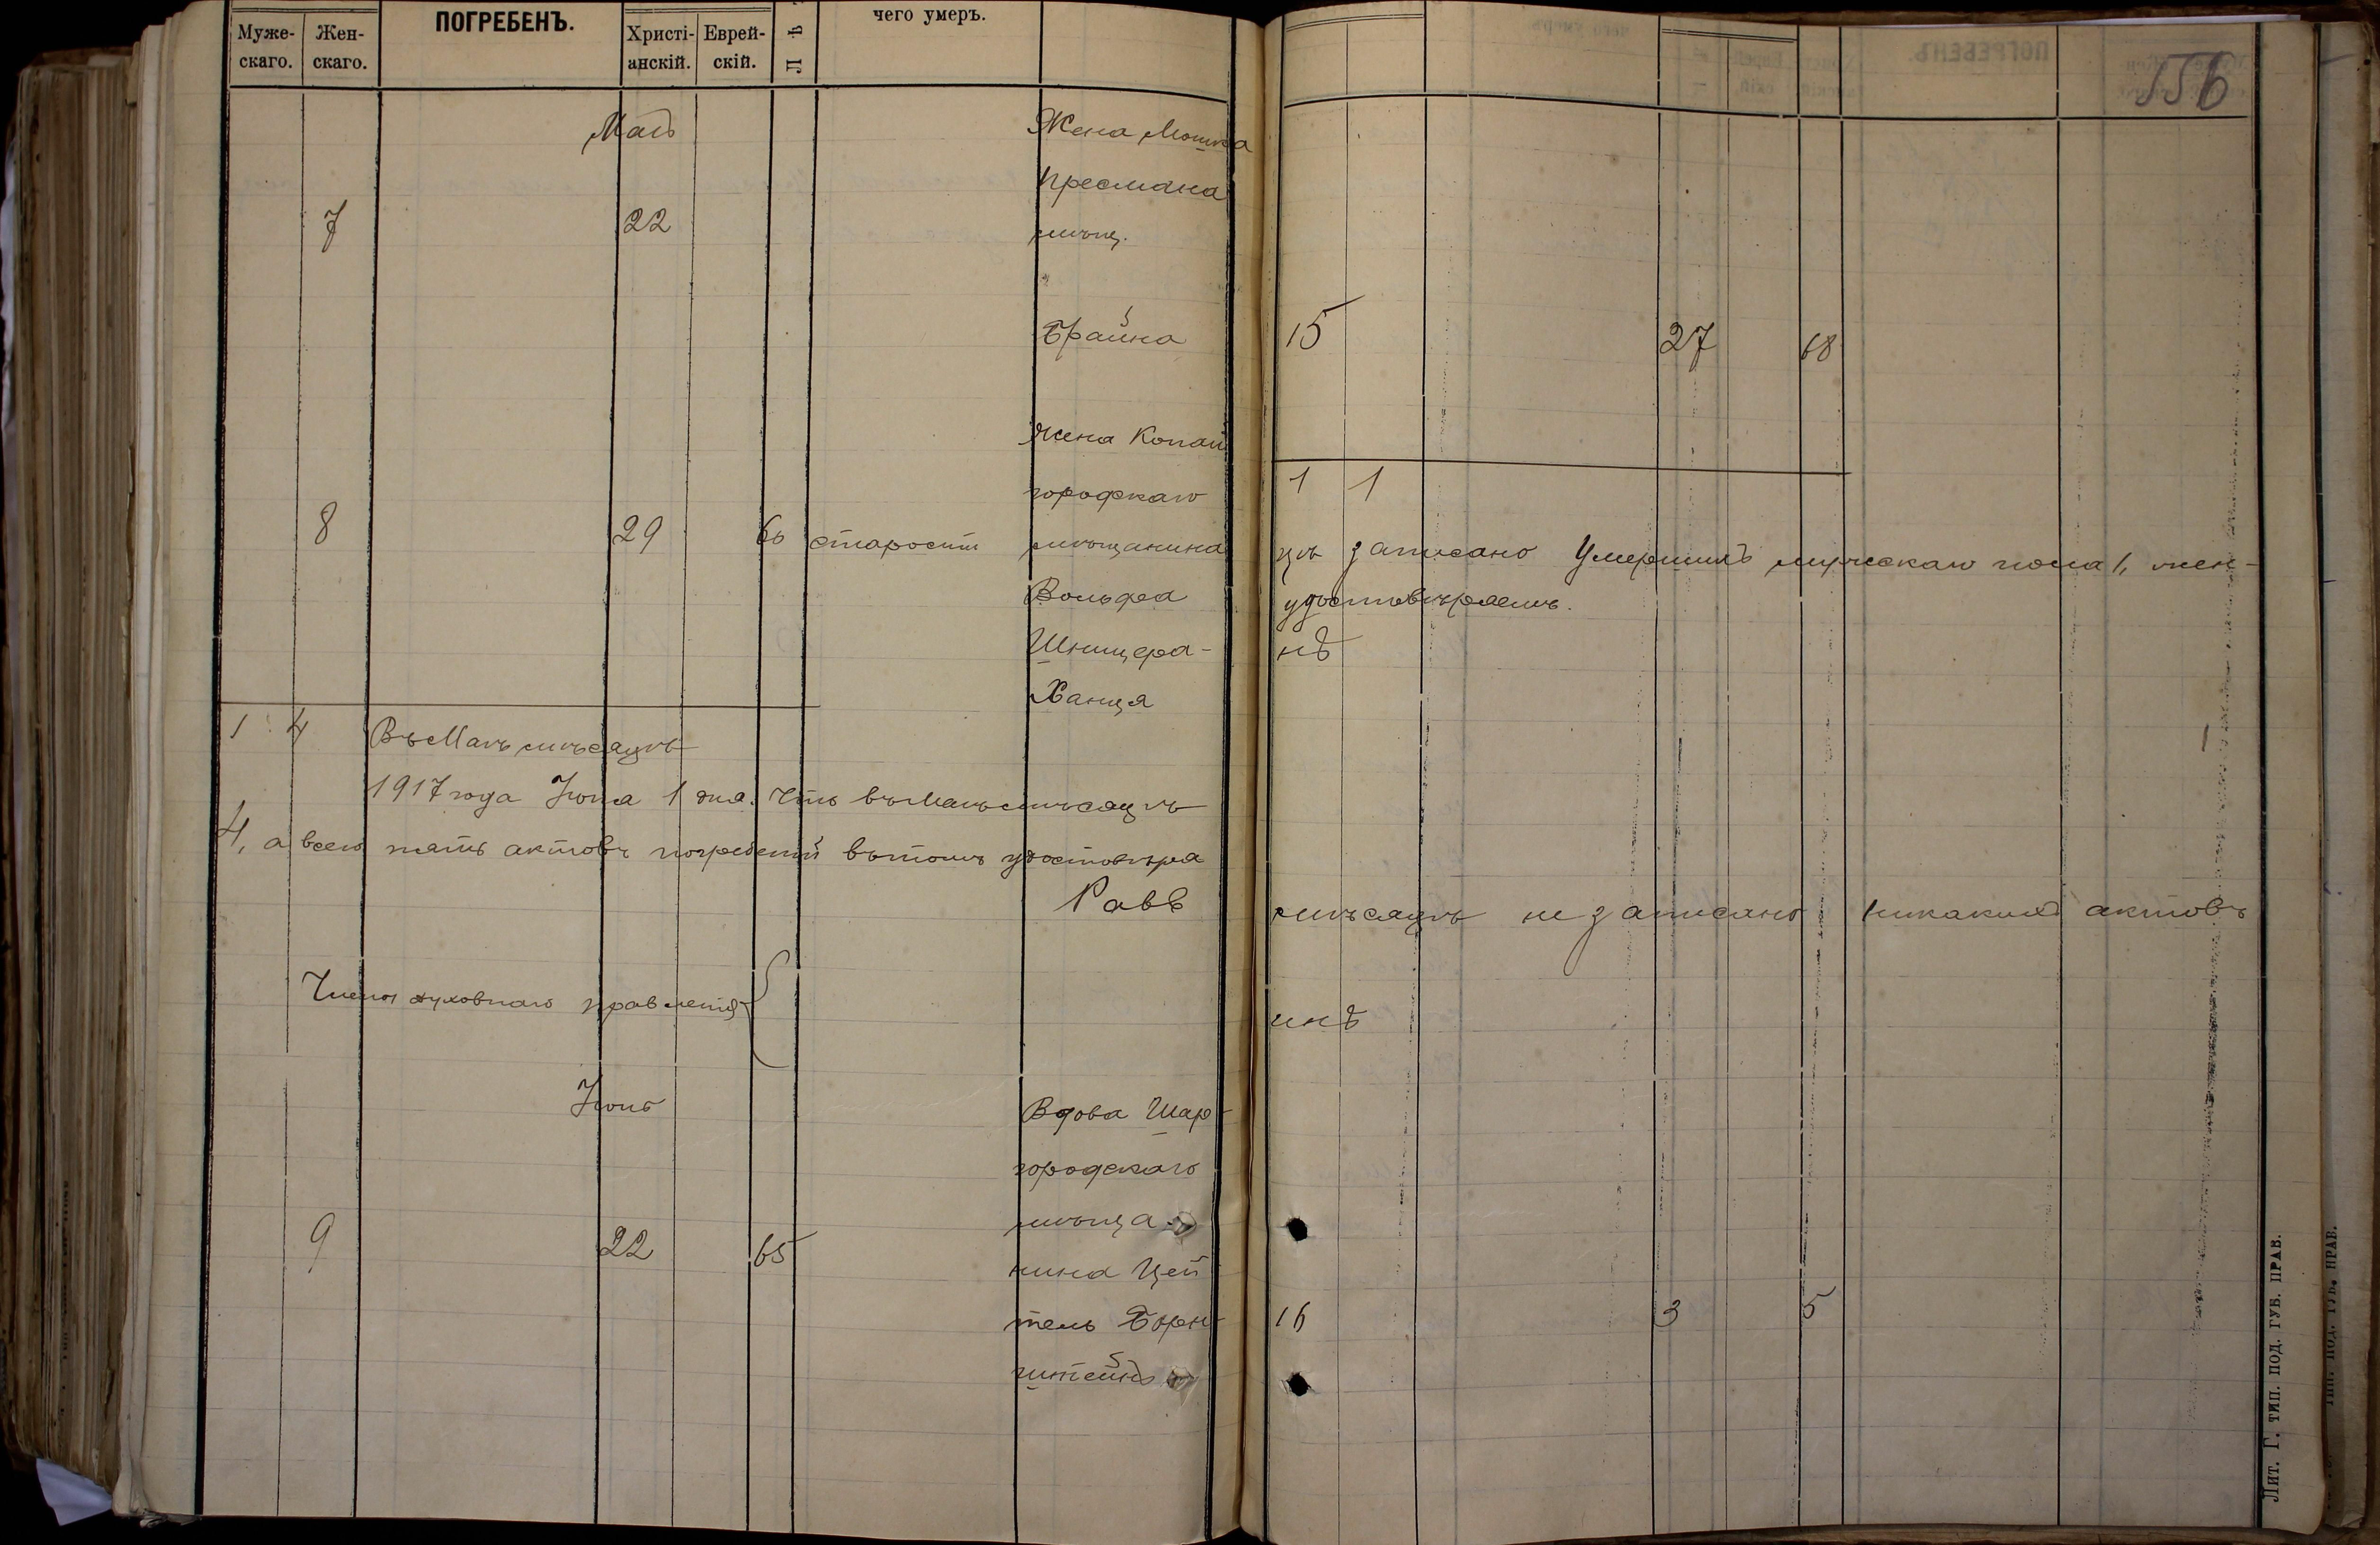 Муже-
скаго.
Жен-
скаго.
ПОГРЕБЕНЪ.
Христі-
анскій.
Еврей-
скій.
Лѣ
чего умеръ.
Май
Жена Мошка
Пресмана
7 22 мѣщ.
Брайна
Жена Копай
городскаго
8 29 60 старости мѣщанина
Вольфа
Шницера-
Ханця
1 4 Въ Маѣ мѣсяцѣ
1917 года Іюня 1 дня. Что въ Маѣ мѣсяцѣ
4, а всего пять актовъ погребеній въ томъ удостовѣря
Равв
Члены духовнаго правленія
Іюнь
Вдова Шар-
городскаго
мѣща-
9 22 65 нина Цей
тель Борн-
штейнъ
556
15 27 68
1 1
цѣ записано Умершихъ мужскаго пола 1, жен-
удостовѣряемъ.
нъ
мѣсяцѣ не записано никакихъ актовъ
инъ
16 3 5
Лит. Г. тип. под. губ. прав.
тип. под. губ. прав.